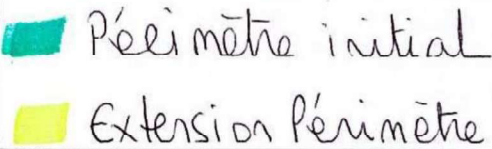 Périmètre initial
Extension Périmètre